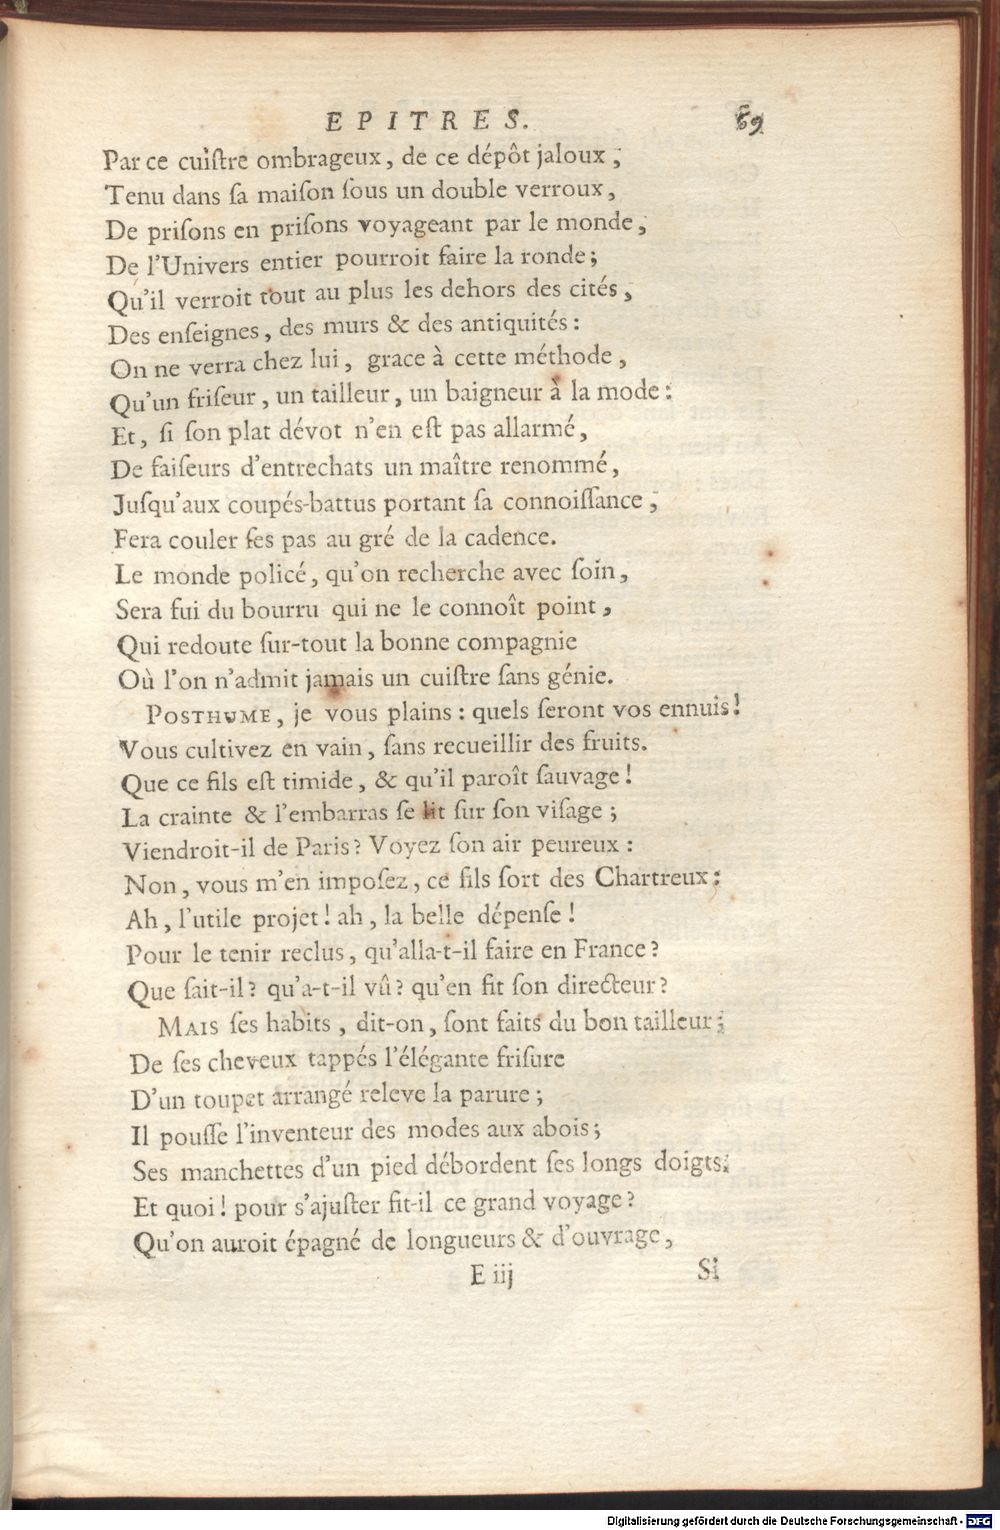 EPITRES. 69
Par ce cuiſtre ombrageux, de ce dépôt jaloux ;
Tenu dans ſa maiſon ſous un double verroux,
De priſons en priſons voyageant par le monde,
De l'Univers entier pourroit faire la ronde;
Qu'il verroit tout au plus les dehors des cités,
Des enſeignes, des murs & des antiquités :
On ne verra chez lui, grace à cette méthode,
Qu'un friſeur, un tailleur, un baigneur à la mode :
Et, ſi ſon plat dévot n'en eſt pas allarmé,
De faiſeurs d'entrechats un maître renommé,
Juſqu'aux coupés-battus portant ſa connoiſſance,
Fera couler ſes pas au gré de la cadence.
Le monde policé, qu'on recherche avec ſoin,
Sera fui du bourru qui ne le connoît point,
Qui redoute ſur-tout la bonne compagnie
Où l'on n'admit jamais un cuiſtre ſans génie.
POSTHUME, je vous plains : quels ſeront vos ennuis !
Vous cultivez en vain, ſans recueillir des fruits.
Que ce fils eſt timide, & qu'il paroît ſauvage !
La crainte & l'embarras ſe lit ſur ſon viſage ;
Viendroit-il de Paris ? Voyez ſon air peureux :
Non, vous m'en impoſez, ce fils ſort des Chartreux :
Ah, l'utile projet ! ah, la belle dépenſe !
Pour le tenir reclus, qu'alla-t-il faire en France ?
Que ſait-il ? qu'a-t-il vû ? qu'en fit ſon directeur ?
MAIS ſes habits, dit-on, ſont faits du bon tailleur ;
De ſes cheveux tappés l'élégante friſure
D'un toupet arrangé releve la parure ;
Il pouſſe l'inventeur des modes aux abois ;
Ses manchettes d'un pied débordent ſes longs doigts.
Et quoi ! pour s'ajuſter fit-il ce grand voyage ?
Qu'on auroit épagné de longueurs & d'ouvrage,
E iij Si
Digitalisierung gefördert durch die Deutsche Forschungsgemeinschaft - DFG